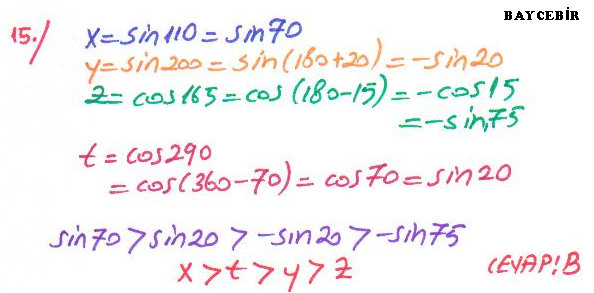 BAYCEBİR
15./ x=sin110=sin70
y=sin200=sin(180+20)=-sin20
z=cos165=cos(180-15)=-cos15
=-sin75
t=cos290
=cos(360-70)=cos70=sin20
sin70>sin20>-sin20>-sin75
x>t>y>z
CEVAP!B